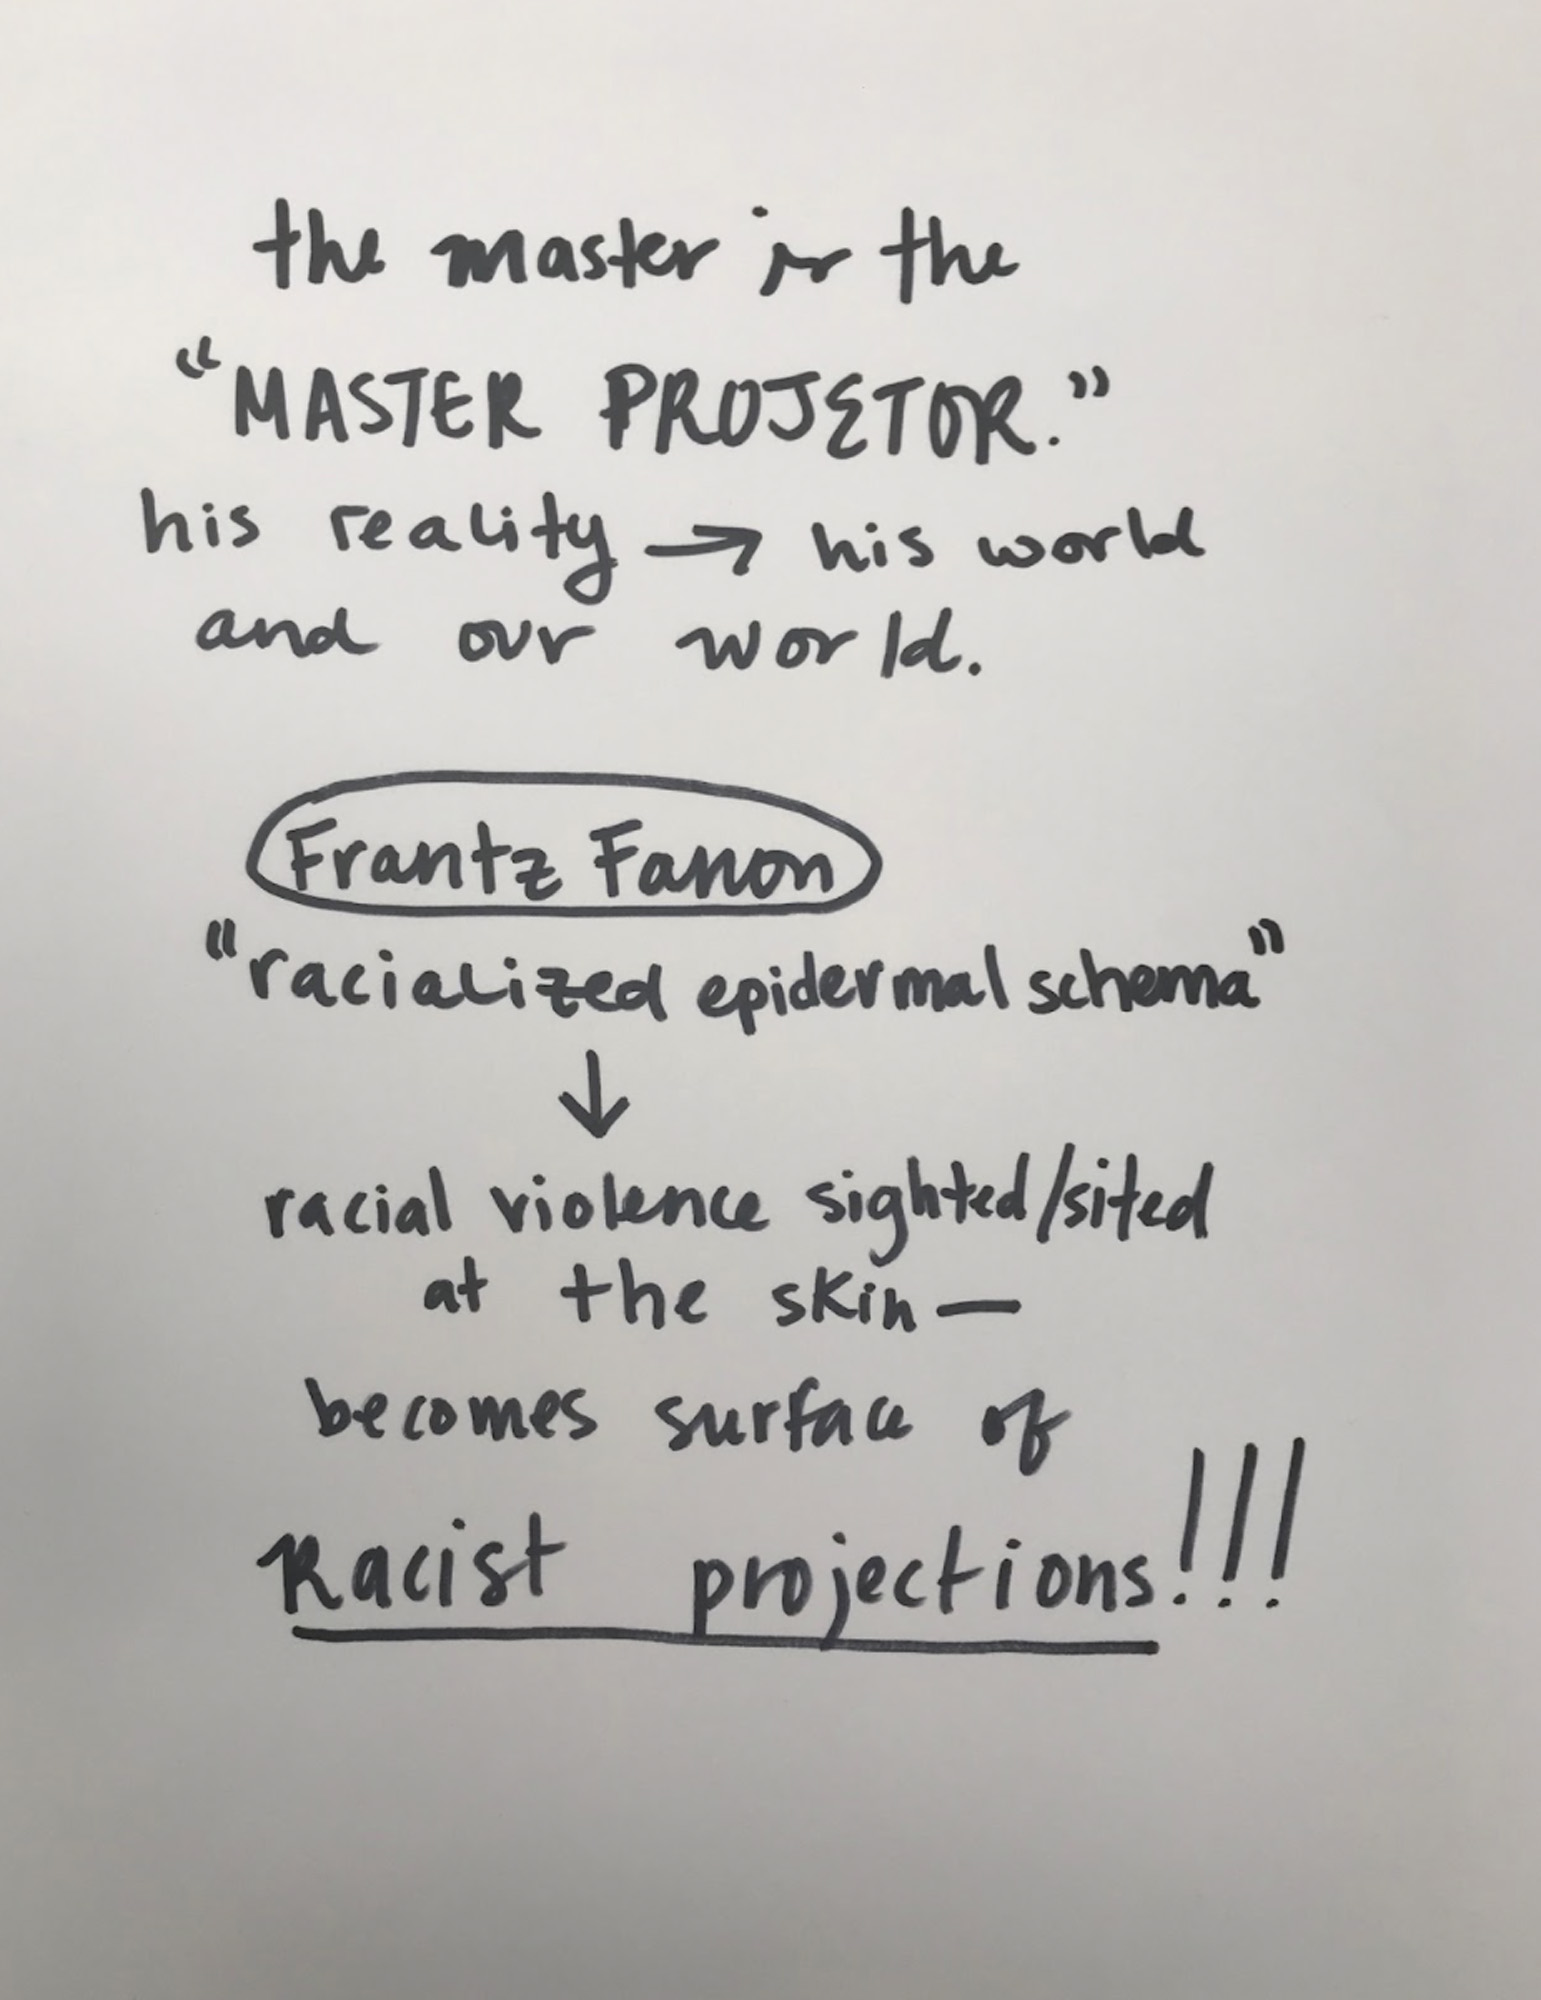 the master is the
“MASTER PROJETOR.”
his reality → his world
and our world.
Frantz Fanon
"racialized epidermal schema"
↓
racial violence sighted/sited
at the skin —
becomes surface of
Racist projections!!!